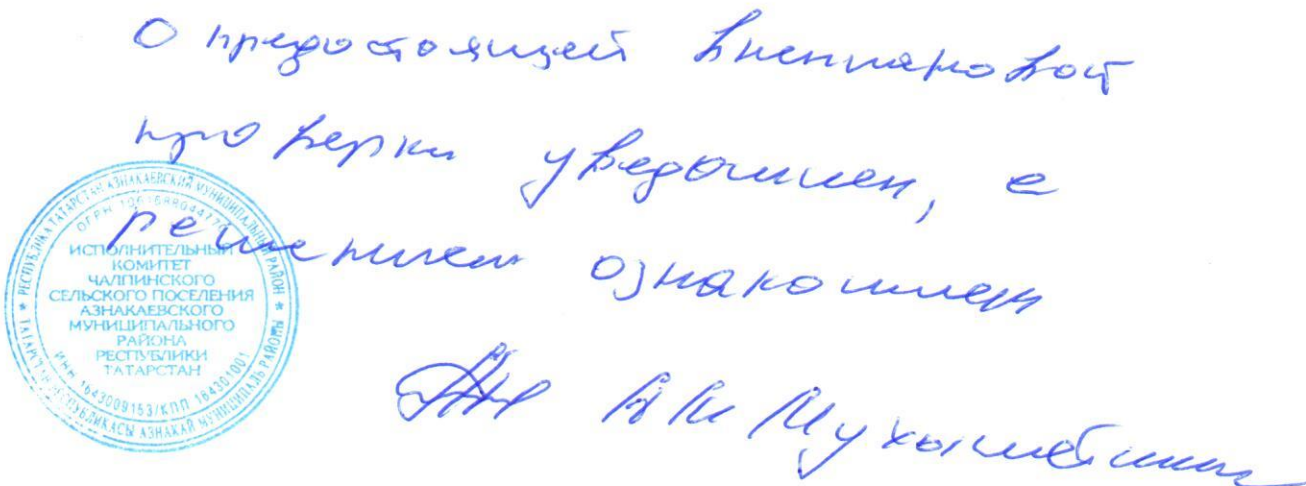 О предстоящей внеплановой
проверки уведомлен, с
решением ознакомлен
Мухаметшин
РЕСПУБЛИКА ТАТАРСТАН АЗНАКАЕВСКИЙ МУНИЦИПАЛЬНЫЙ РАЙОН
ИСПОЛНИТЕЛЬНЫЙ
КОМИТЕТ
ЧАЛПИНСКОГО
СЕЛЬСКОГО ПОСЕЛЕНИЯ
АЗНАКАЕВСКОГО
МУНИЦИПАЛЬНОГО
РАЙОНА
РЕСПУБЛИКИ
ТАТАРСТАН
ИНН 1643009153/КПП 164301001
ТАТАРСТАН РЕСПУБЛИКАСЫ АЗНАКАЙ МУНИЦИПАЛЬ РАЙОНЫ